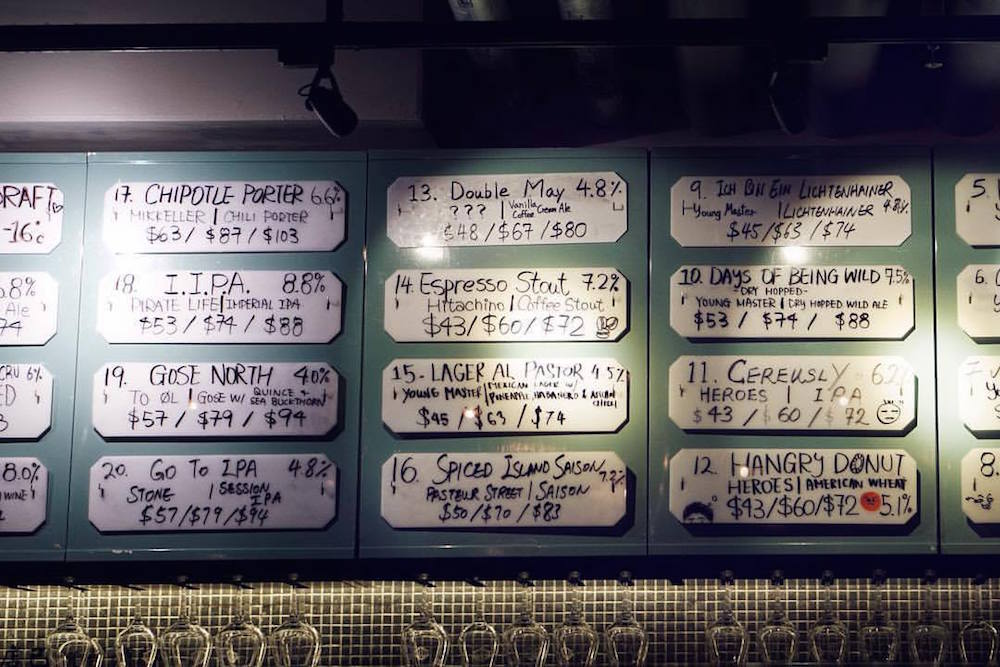 DRAFT
-16°c
.8%
Ale
74
CRU 6%
ED
3
8.0%
WINE
17. CHIPOTLE PORTER 6.6%
MIKKELLER | CHILI PORTER
$63 / $87 / $103
18. I.I.P.A. 8.8%
PIRATE LIFE | IMPERIAL IPA
$53 / $74 / $88
19. GOSE NORTH 4.0%
TO ØL | GOSE W/ QUINCE &
SEA BUCKTHORN
$57 / $79 / $94
20. GO TO IPA 4.8%
STONE | SESSION
IPA
$57/$79/$94
13. Double May 4.8%
??? | Vanilla
Coffee Cream Ale
$48 / $67 / $80
14 Espresso Stout 7.2%
Hitachino | Coffee Stout
$43/$60/$72
15. LAGER AL PASTOR 4.5%
YOUNG MASTER | MEXICAN LAGER W/
PINEAPPLE, HABANERO &
$45 / $63 / $74
16. SPICED ISLAND SAISON 7.2%
PASTEUR STREET | SAISON
$50 / $70 / $83
9. ICH BIN EIN LICHTENHAINER
Young Master | LICHTENHAINER 4.8%
$45/$63 / $74
10. DAYS OF BEING WILD 7.5%
-DRY HOPPED-
YOUNG MASTER | DRY HOPPED WILD ALE
$53 / $74 / $88
11. CEREUSLY 6.2%
HEROES | IPA
$43 / 60 / 72
12. HANGRY DONUT
HEROES | AMERICAN WHEAT
$43/$60/$72 5.1%
5.
6.
7
8.